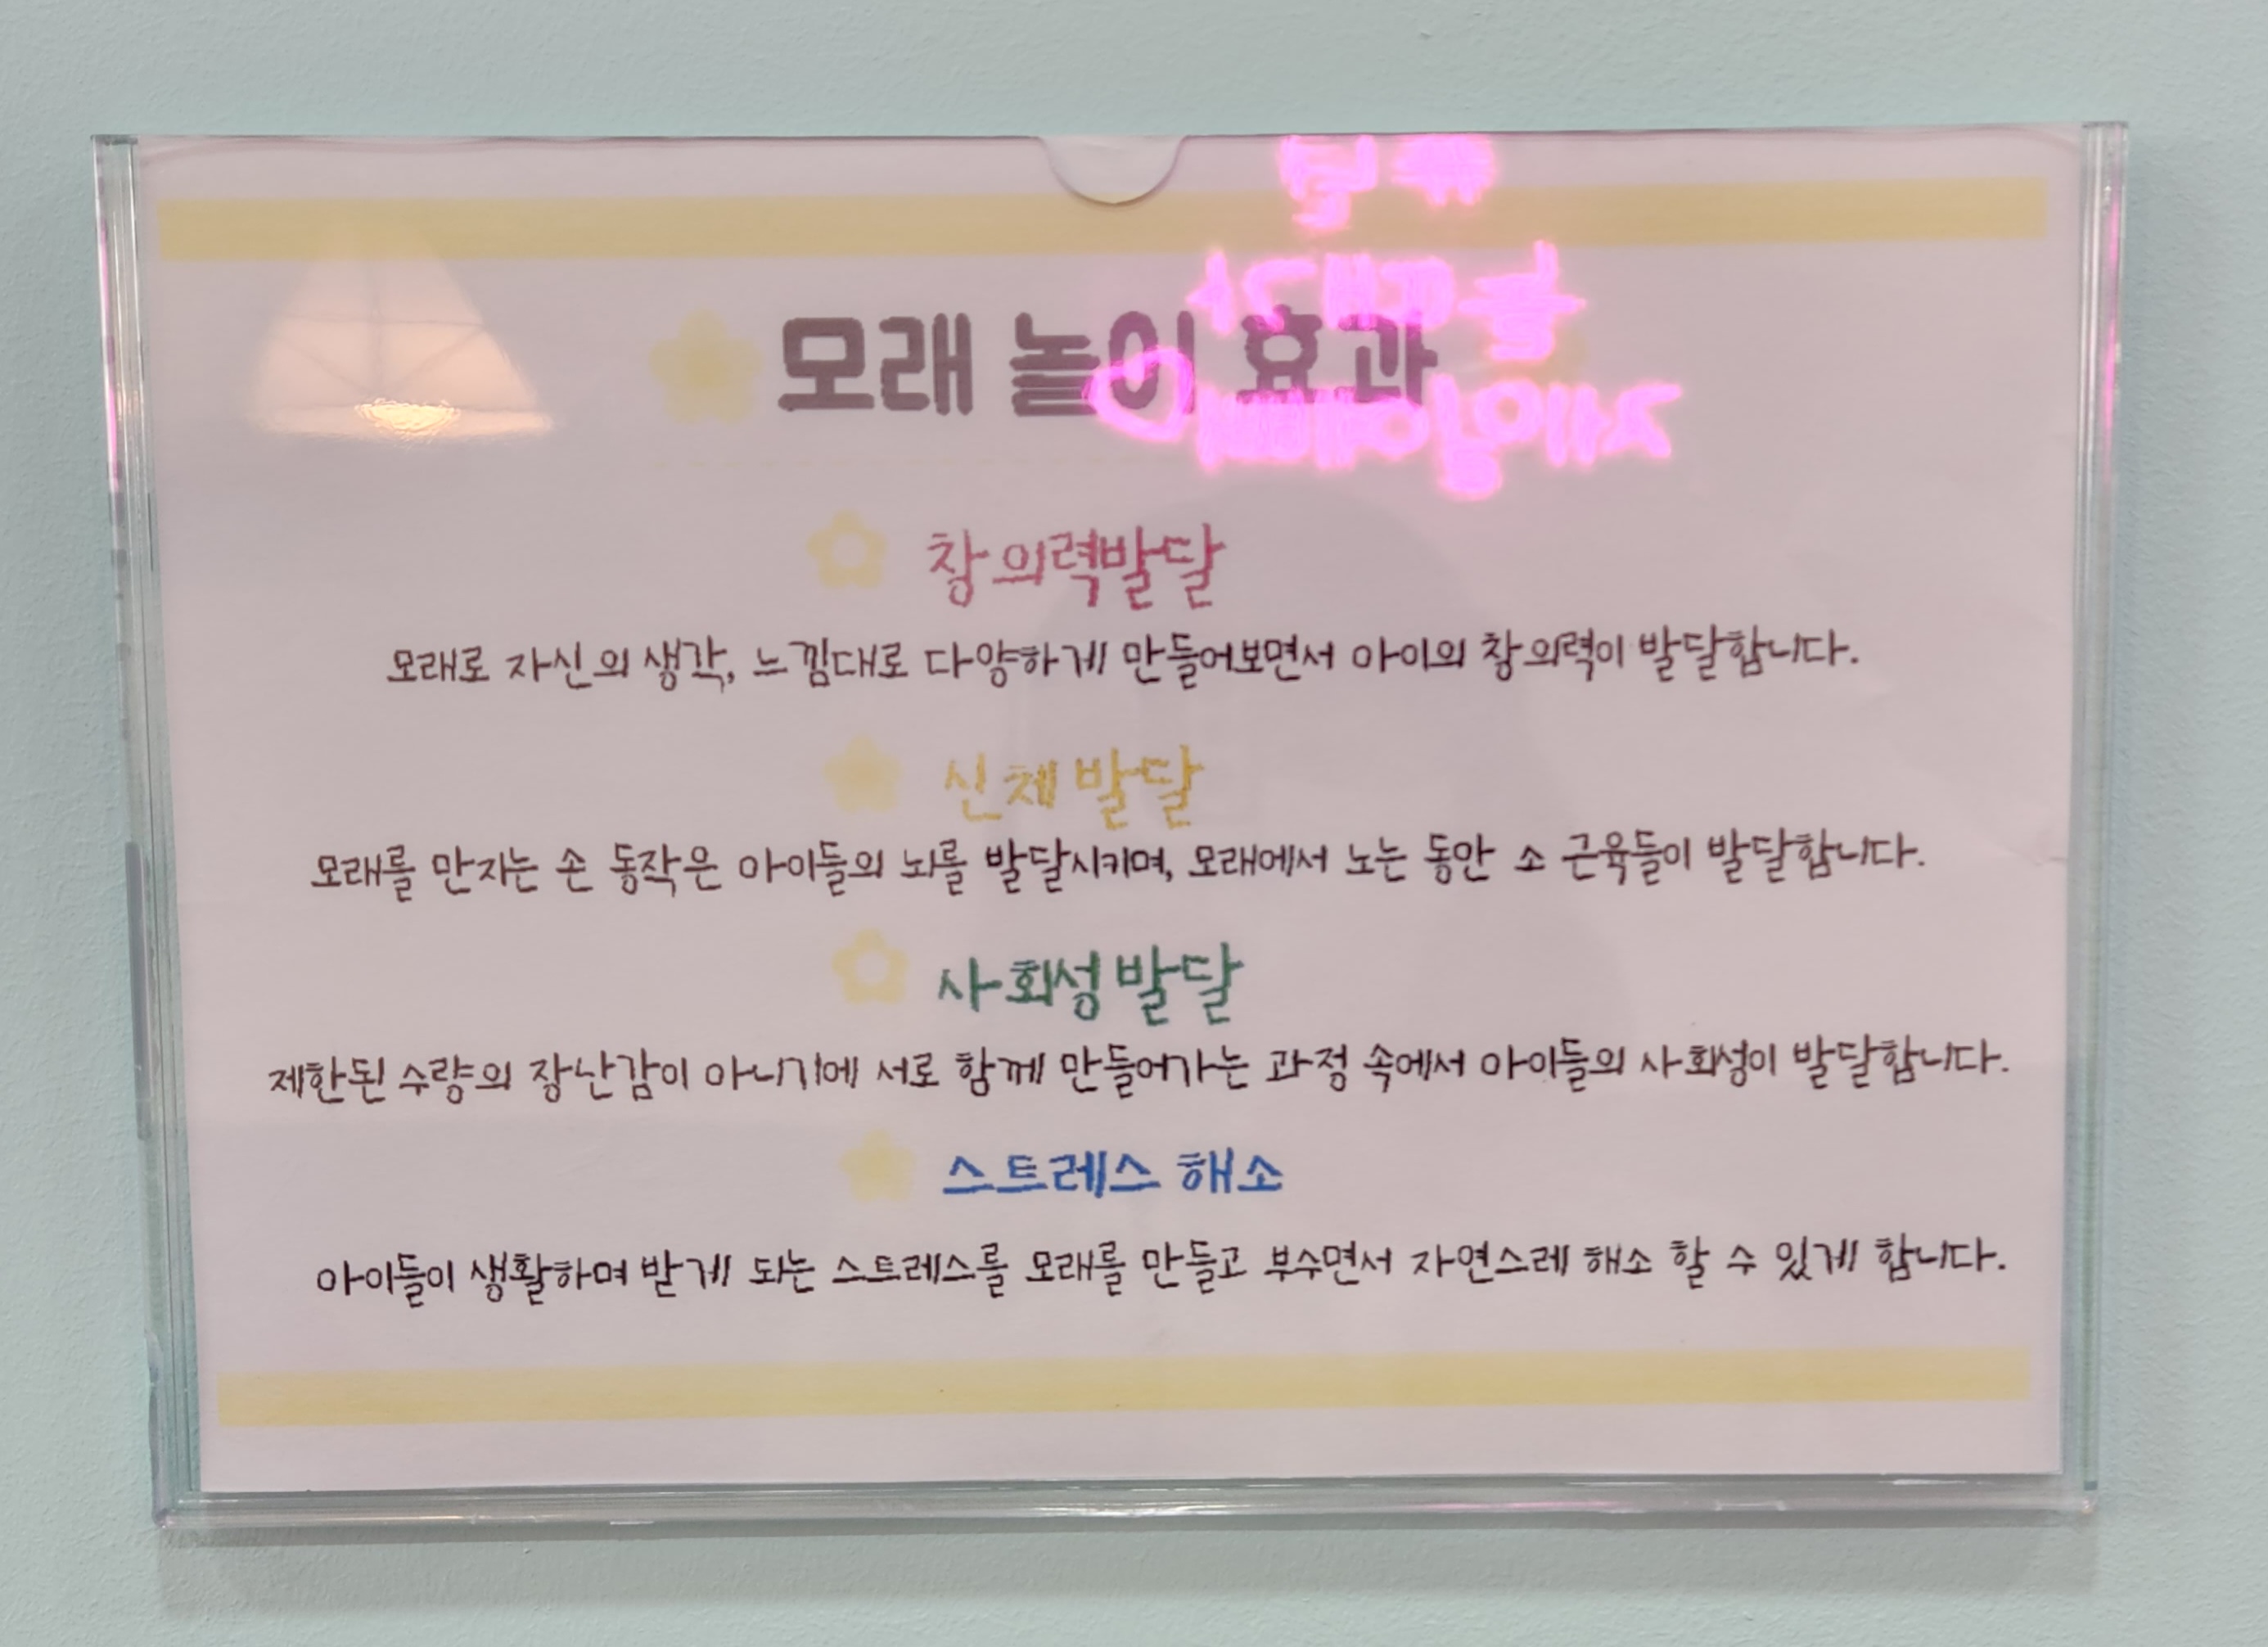 모래 놀이 효과
창의력발달
모래로 자신의 생각, 느낌대로 다양하게 만들어보면서 아이의 창의력이 발달합니다.
신체발달
모래를 만지는 손 동작은 아이들의 뇌를 발달시키며, 모래에서 노는 동안 소 근육들이 발달합니다.
사회성발달
제한된 수량의 장난감이 아니기에 서로 함께 만들어가는 과정 속에서 아이들의 사회성이 발달합니다.
스트레스 해소
아이들이 생활하며 받게 되는 스트레스를 모래를 만들고 부수면서 자연스레 해소 할 수 있게 합니다.